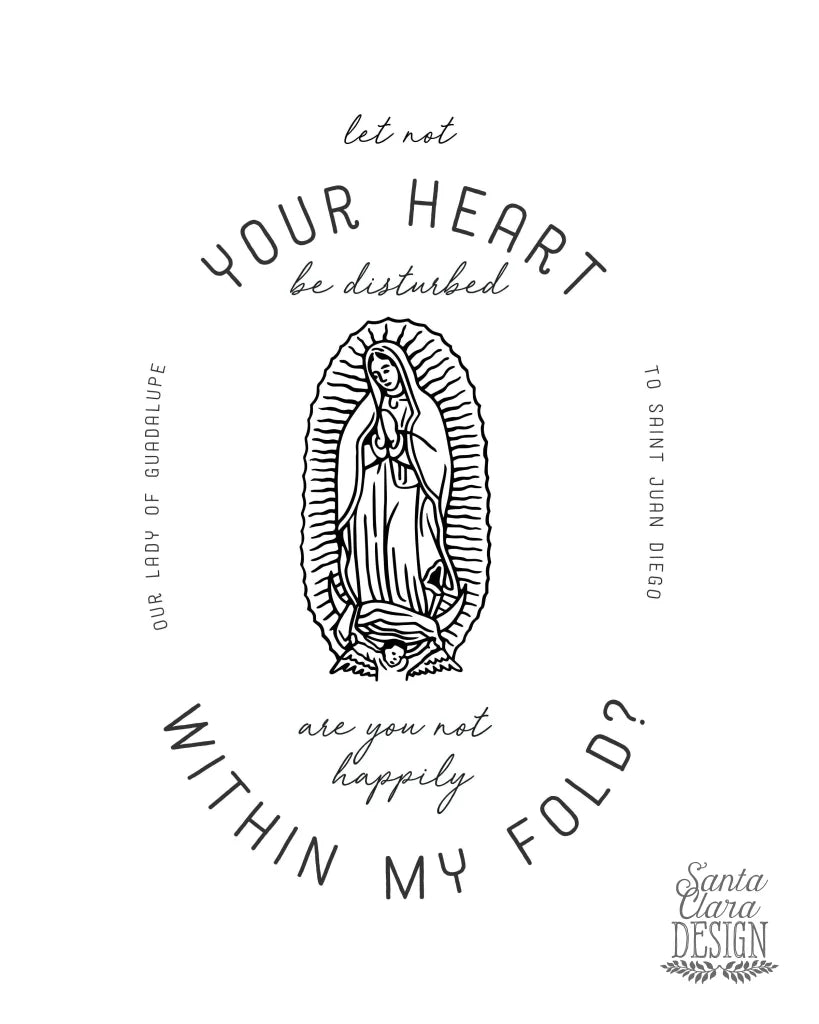 let not
YOUR HEART
be disturbed
OUR LADY OF GUADALUPE
TO SAINT JUAN DIEGO
are you not
happily
WITHIN MY FOLD?
Santa
Clara
DESIGN